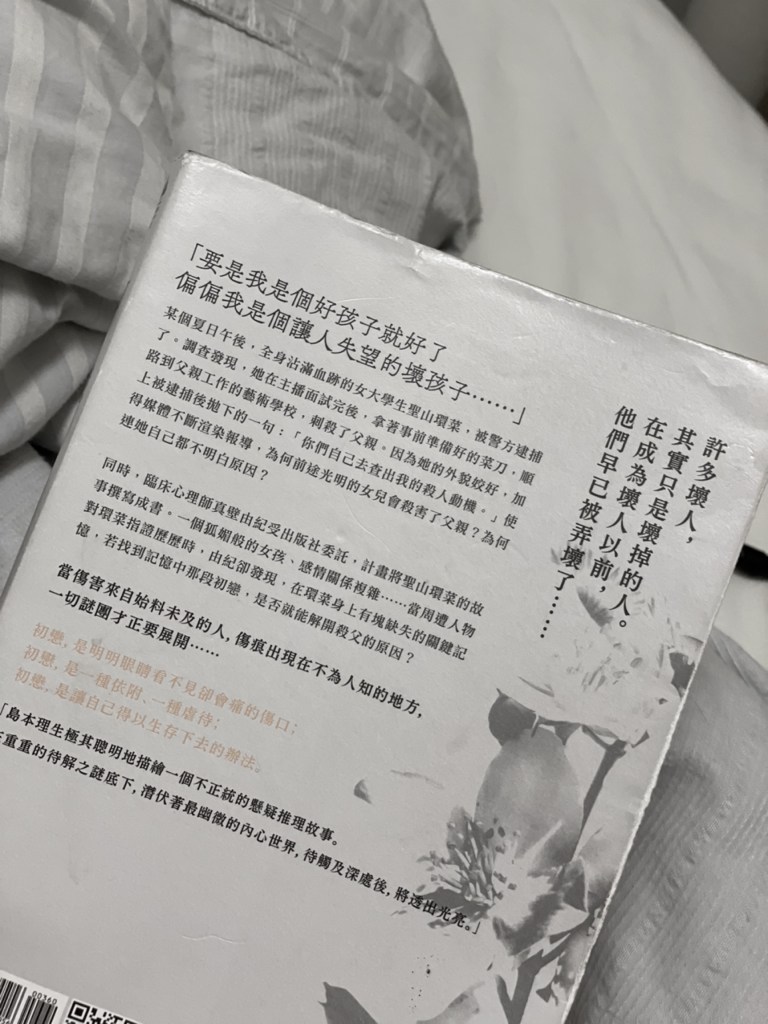 許多壞人，
其實只是壞掉的人。
在成為壞人以前，
他們早已被弄壞了……
「要是我是個好孩子就好了
偏偏我是個讓人失望的壞孩子……」
某個夏日午後，全身沾滿血跡的女大學生聖山環菜，被警方逮捕
了。調查發現，她在主播面試完後，拿著事前準備好的菜刀，順
路到父親工作的藝術學校，刺殺了父親。因為她的外貌姣好，加
上被逮捕後拋下的一句：「你們自己去查出我的殺人動機。」使
得媒體不斷渲染報導，為何前途光明的女兒會殺害了父親？為何
連她自己都不明白原因？
同時，臨床心理師真壁由紀受出版社委託，計畫將聖山環菜的故
事撰寫成書。一個狐媚般的女孩、感情關係複雜……當周遭人物
對環菜指證歷歷時，由紀卻發現，在環菜身上有塊缺失的關鍵記
憶，若找到記憶中那段初戀，是否就能解開殺父的原因？
當傷害來自始料未及的人，傷痕出現在不為人知的地方，
一切謎團才正要展開……
初戀，是明明眼睛看不見卻會痛的傷口；
初戀，是一種依附、一種虐待；
初戀，是讓自己得以生存下去的辦法。
「島本理生極其聰明地描繪一個不正統的懸疑推理故事。
重重的待解之謎底下，潛伏著最幽微的內心世界，待觸及深處後，將透出光亮。」
00360